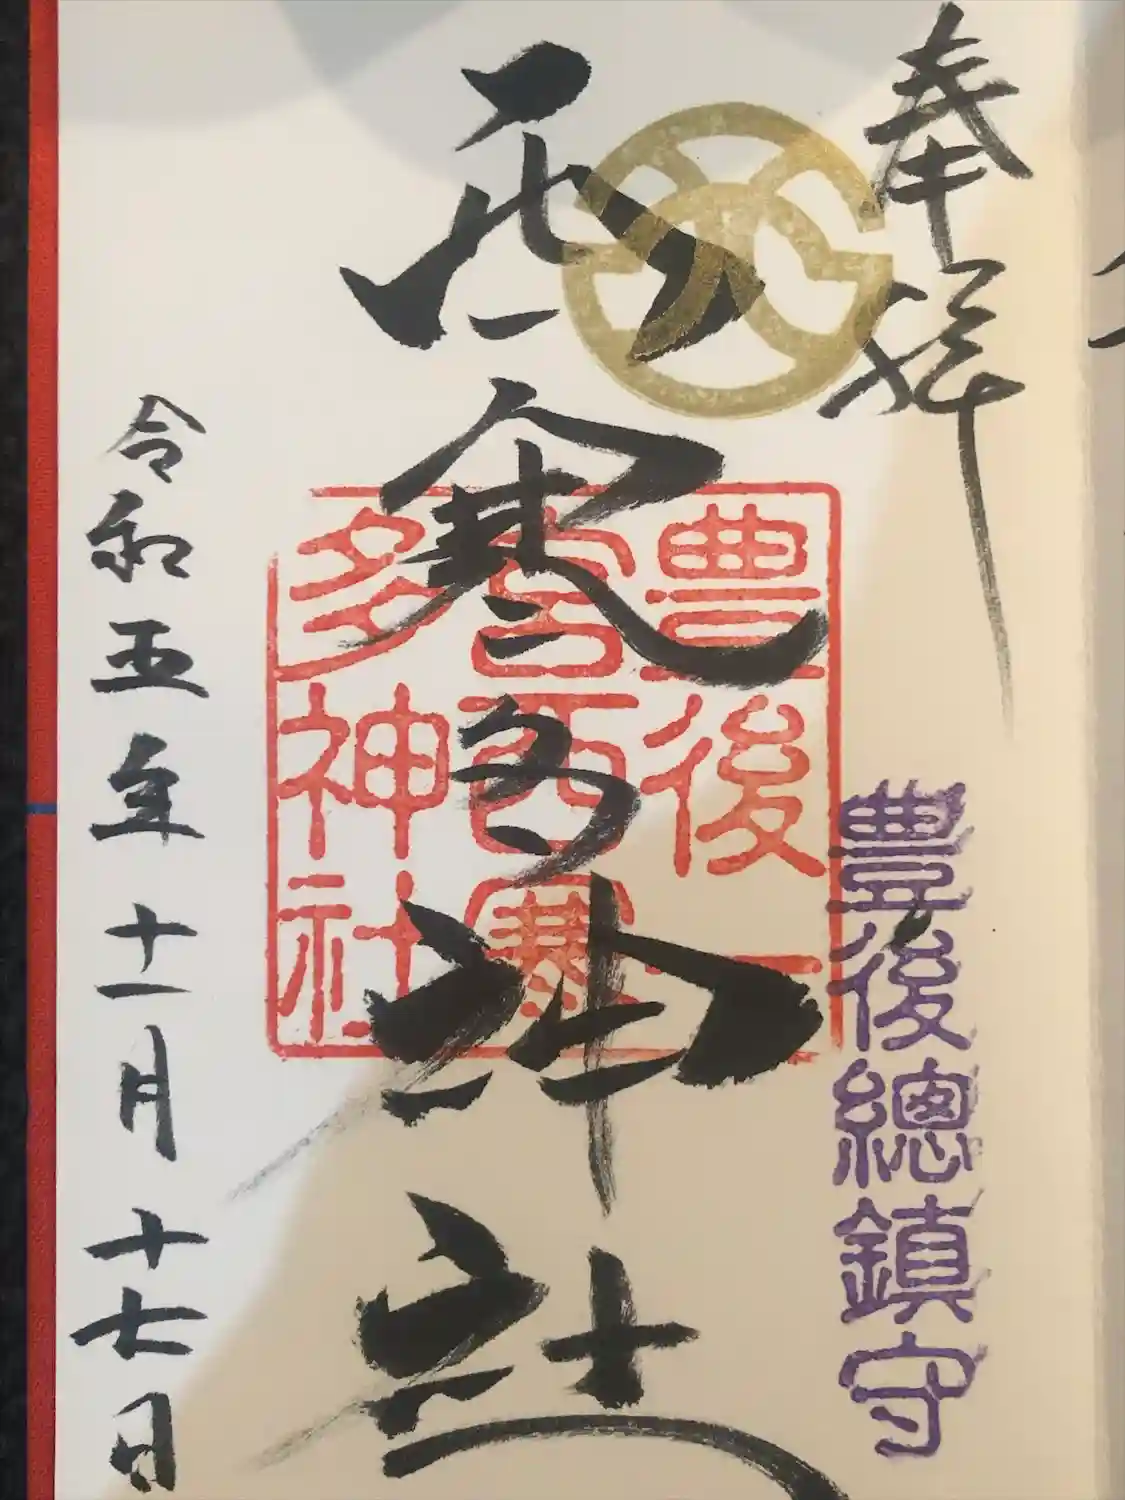 奉拝
豊後總鎮守
西寒多神社
豊後一
宮西寒
多神社
令和五年十一月十七日